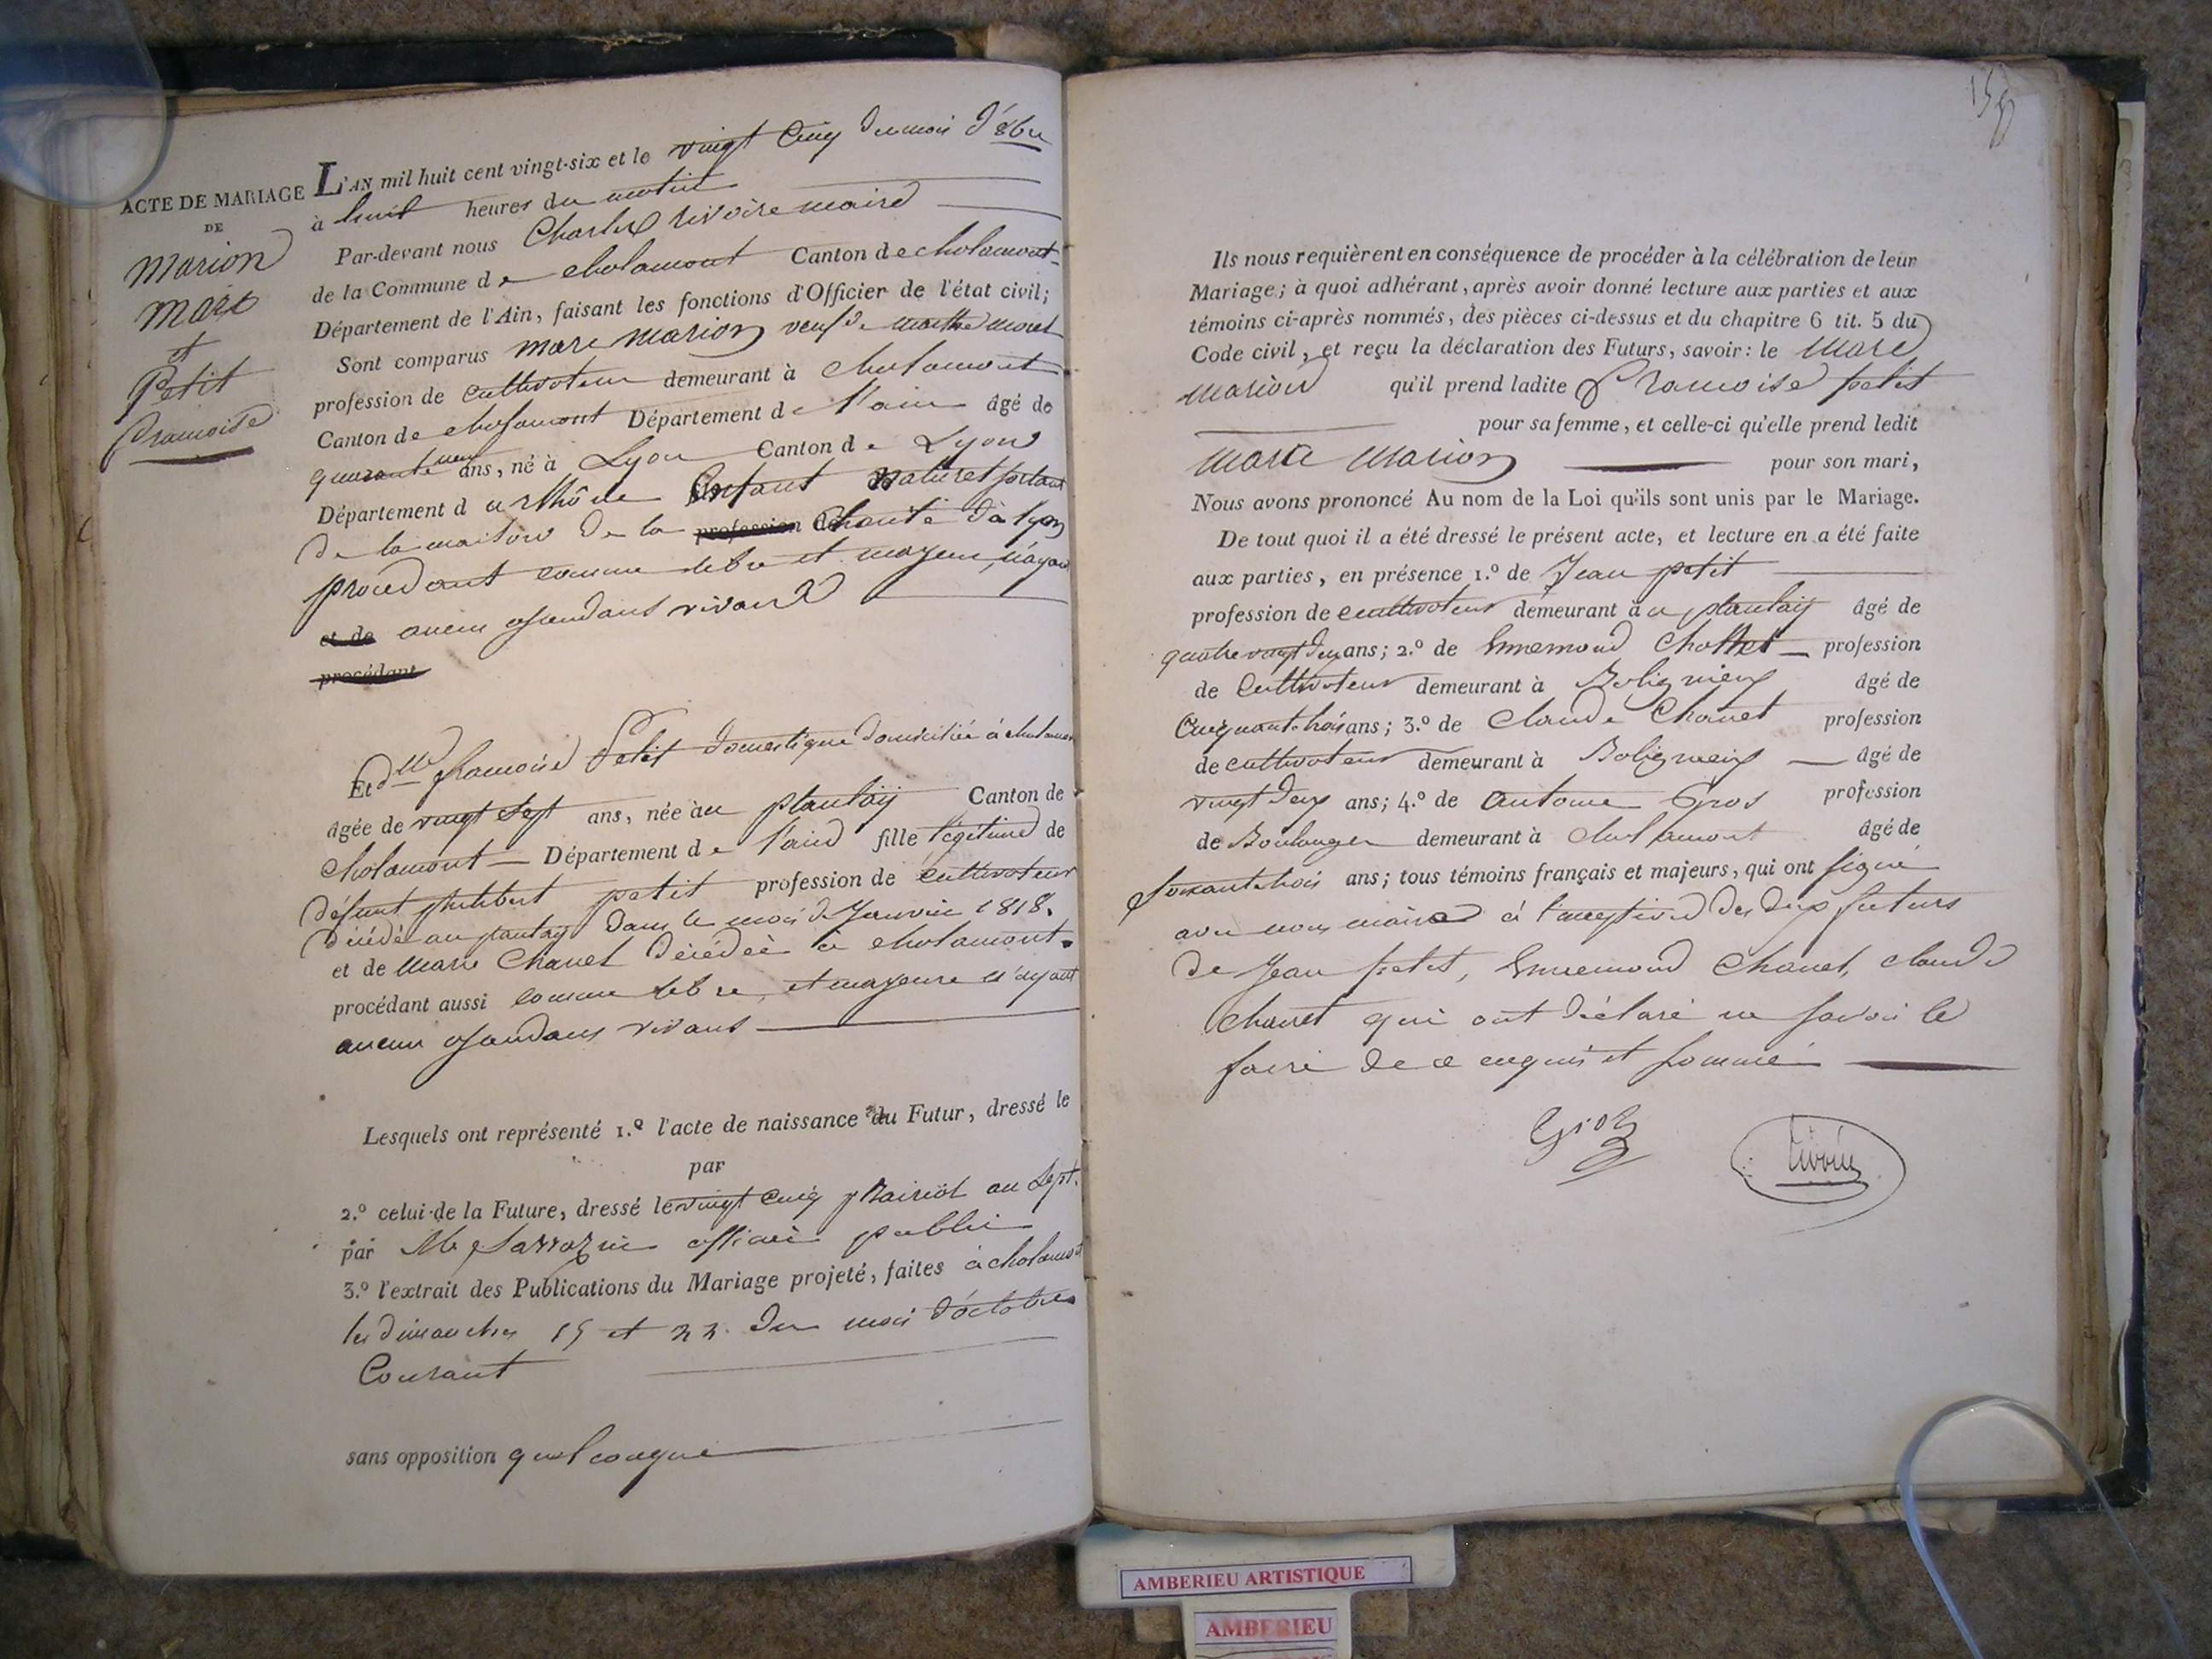 ACTE DE MARIAGE
DE
Marion
Marc
et
Petit
francoise
L'AN mil huit cent vingt-six et le vingt cinq du mois d'8bre
à huit heures du matin
Par-devant nous Charles rivoire maire
de la Commune de chalamont Canton de chalamont
Département de l'Ain, faisant les fonctions d'Officier de l'état civil;
Sont comparus marc marion veuf de marthe
profession de cultivateur demeurant à chalamont
Canton de chalamont Département de l'ain âgé de
quarante neuf ans, né à Lyon Canton de Lyon
Département du rhône Enfant naturel
de la maison de la profession de charité à lyon
procedant comme libre et majeur n'ayant
et de aucun assendans vivant
procédant
Et dlle francoise Petit domestique domiciliée à chalamont
âgée de vingt sept ans, née au plantay Canton de
chalamont Département de l'ain fille légitime de
défunt philibert petit profession de cultivateur
décédé au plantay dans le mois de Janvier 1818.
et de Marie Chanel décédée à chalamont.
procédant aussi comme libre et majeure n'ayant
aucun assendans vivant
Lesquels ont représenté 1.º l'acte de naissance du Futur, dressé le
par
2.º celui de la Future, dressé le vingt cinq prairial an Sept.
par Mr Sarrazin officier public
3.º l'extrait des Publications du Mariage projeté, faites à chalamont
les dimanches 15 et 22 du mois d'octobre
Courant
sans opposition quelconque
Ils nous requièrent en conséquence de procéder à la célébration de leur
Mariage; à quoi adhérant, après avoir donné lecture aux parties et aux
témoins ci-après nommés, des pièces ci-dessus et du chapitre 6 tit. 5 du
Code civil, et reçu la déclaration des Futurs, savoir: le Marc
marion qu'il prend ladite francoise petit
pour sa femme, et celle-ci qu'elle prend ledit
Marc Marion pour son mari,
Nous avons prononcé Au nom de la Loi qu'ils sont unis par le Mariage.
De tout quoi il a été dressé le présent acte, et lecture en a été faite
aux parties, en présence 1.º de Jean petit
profession de cultivateur demeurant à u plantay âgé de
quatre vingt deux ans; 2.º de Ennemond profession
de Cultivateur demeurant à Boligneux âgé de
Cinquante trois ans; 3.º de Claude Chanet profession
de cultivateur demeurant à Boligneux âgé de
vingt deux ans; 4.º de antoine Gros profession
de Boulanger demeurant à chalamont âgé de
soixante trois ans; tous témoins français et majeurs, qui ont signé
avec nous maire à l'exception des deux futurs
de Jean petit, Ennemond Chanet, claude
Chanet qui ont déclaré ne savoir le
faire de ce enquis et sommé
Gros
rivoire
AMBERIEU ARTISTIQUE
AMBERIEU